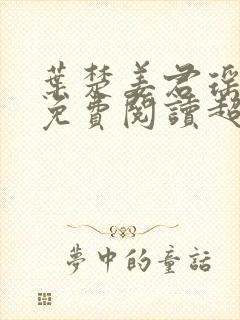 葉楚姜君瑤
免費閱讀超
夢中的童話